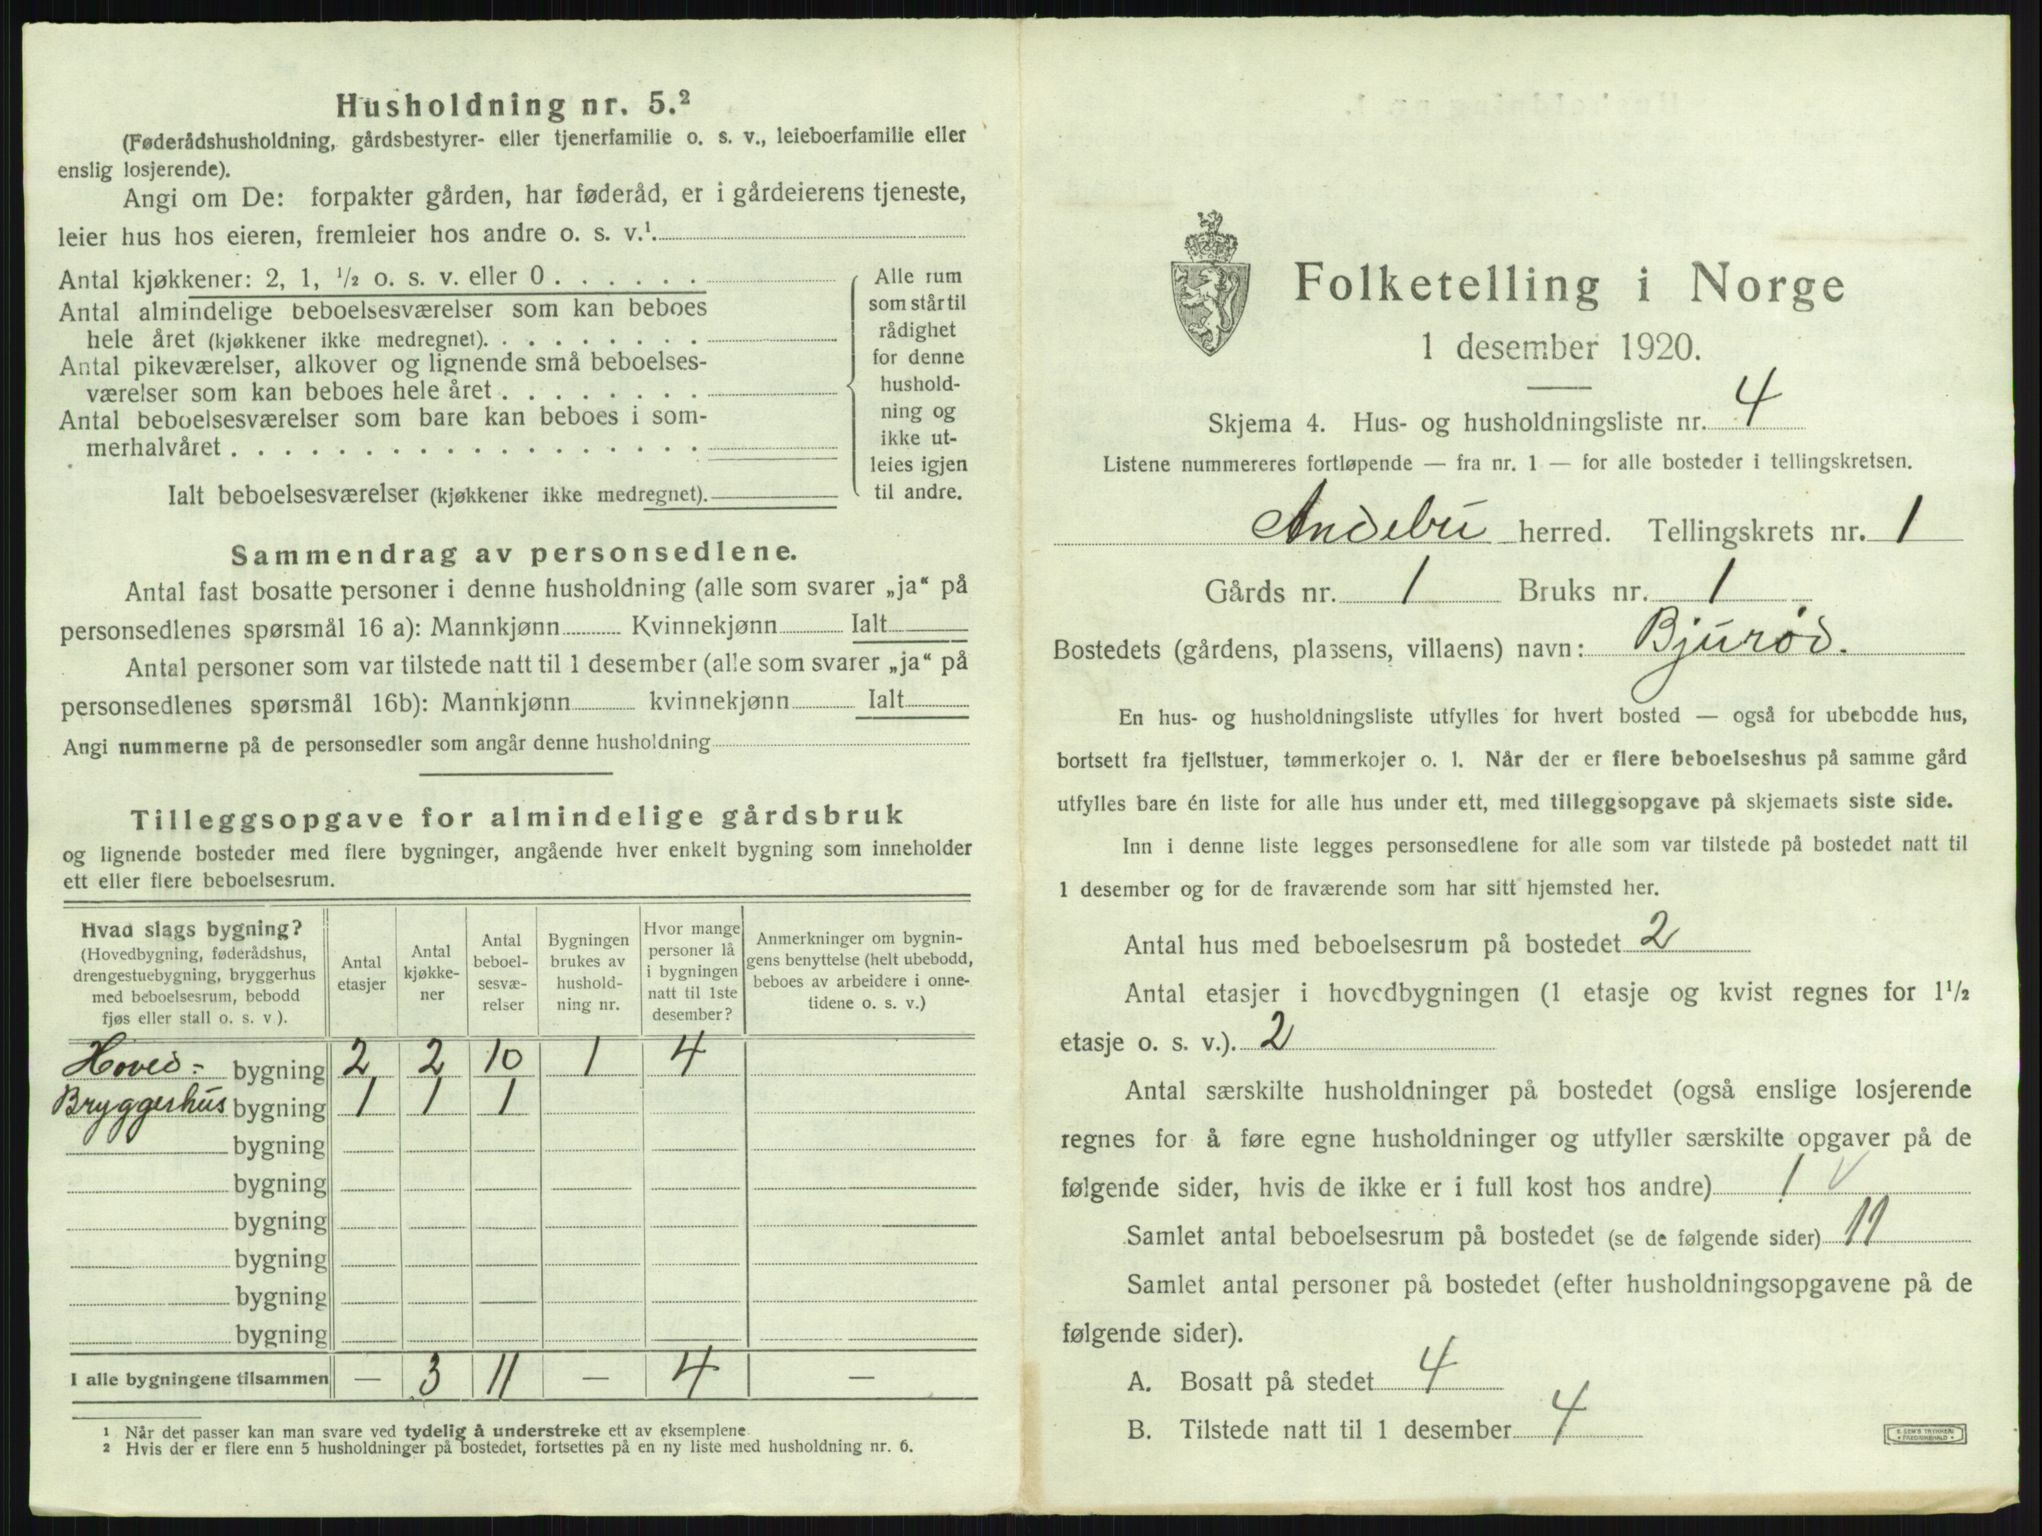 Husholdning nr. 5.²
(Føderådshusholdning, gårdsbestyrer- eller tjenerfamilie o. s. v., leieboerfamilie eller
enslig losjerende).
Angi om De: forpakter gården, har føderåd, er i gårdeierens tjeneste,
leier hus hos eieren, fremleier hos andre o. s. v.¹.
Antal kjøkkener: 2, 1, ½ o. s. v. eller 0 . . . . . .
Antal almindelige beboelsesværelser som kan beboes
hele året (kjøkkener ikke medregnet). . . . . . . . .
Antal pikeværelser, alkover og lignende små beboelses-
værelser som kan beboes hele året . . . . . . . .
Antal beboelsesværelser som bare kan beboes i som-
merhalvåret . . . . . . . . . . . . . . . . . .
Ialt beboelsesværelser (kjøkkener ikke medregnet).
Alle rum
som står til
rådighet
for denne
hushold-
ning og
ikke ut-
leies igjen
til andre.
Sammendrag av personsedlene.
Antal fast bosatte personer i denne husholdning (alle som svarer „ja“ på
personsedlenes spørsmål 16 a): Mannkjønn Kvinnekjønn Ialt
Antal personer som var tilstede natt til 1 desember (alle som svarer „ja“ på
personsedlenes spørsmål 16b): Mannkjønn kvinnekjønn Ialt
Angi nummerne på de personsedler som angår denne husholdning
Tilleggsopgave for almindelige gårdsbruk
og lignende bosteder med flere bygninger, angående hver enkelt bygning som inneholder
ett eller flere beboelsesrum.
Hvad slags bygning?
(Hovedbygning, føderådshus,
drengestuebygning, bryggerhus
med beboelsesrum, bebodd
fjøs eller stall o. s. v ).
Antal
etasjer
Antal
kjøkke-
ner
Antal
beboel-
sesvæ-
relser
Bygningen
brukes av
hushold-
ning nr.
Hvor mange
personer lå
i bygningen
natt til 1ste
desember?
Anmerkninger om bygnin-
gens benyttelse (helt ubebodd,
beboes av arbeidere i onne-
tidene o. s. v.)
Hoved- bygning 2 2 10 1 4
Bryggerhus bygning 1 1 1
bygning
bygning
bygning
bygning
bygning
bygning
I alle bygningene tilsammen — 3 11 — 4 —
¹ Når det passer kan man svare ved tydelig å understreke ett av eksemplene
² Hvis der er flere enn 5 husholdninger på bostedet, fortsettes på en ny liste med husholdning nr. 6.
Folketelling i Norge
1 desember 1920.
Skjema 4. Hus- og husholdningsliste nr. 4
Listene nummereres fortløpende — fra nr. 1 — for alle bosteder i tellingskretsen.
Andebu herred. Tellingskrets nr. 1
Gårds nr. 1 Bruks nr. 1
Bostedets (gårdens, plassens, villaens) navn: Bjurød.
En hus- og husholdningsliste utfylles for hvert bosted — også for ubebodde hus,
bortsett fra fjellstuer, tømmerkojer o. l. Når der er flere beboelseshus på samme gård
utfylles bare én liste for alle hus under ett, med tilleggsopgave på skjemaets siste side.
Inn i denne liste legges personsedlene for alle som var tilstede på bostedet natt til
1 desember og for de fraværende som har sitt hjemsted her.
Antal hus med beboelsesrum på bostedet 2
Antal etasjer i hovedbygningen (1 etasje og kvist regnes for 1½
etasje o. s. v.). 2
Antal særskilte husholdninger på bostedet (også enslige losjerende
regnes for å føre egne husholdninger og utfyller særskilte opgaver på de
følgende sider, hvis de ikke er i full kost hos andre) 1
Samlet antal beboelsesrum på bostedet (se de følgende sider) 11
Samlet antal personer på bostedet (efter husholdningsopgavene på de
følgende sider).
A. Bosatt på stedet 4
B. Tilstede natt til 1 desember 4
E. SEM'S TRYKKERI
FREDRIKSHALD